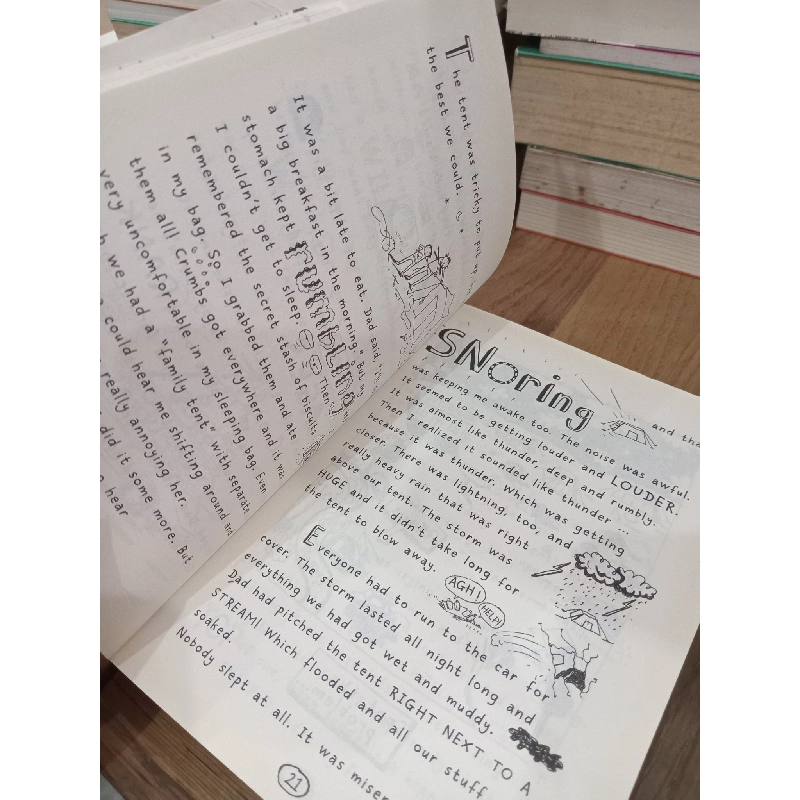 The tent was tricky to put up
the best we could.
It was a bit late to eat. Dad said,
a big breakfast in the morning." But my
stomach kept rumbling
I couldn't get to sleep. Then I
remembered the secret stash of biscuits
in my bag. So I grabbed them and ate
them all! Crumbs got everywhere and it was
very uncomfortable in my sleeping bag. Even
we had a "family tent" with separate
could hear me shifting around and
really annoying her.
did it some more. But
hear
SNoring and tha
was keeping me awake too. The noise was awful.
It seemed to be getting louder and LOUDER.
It was almost like thunder, deep and rumbly.
Then I realized it sounded like thunder ...
because it was thunder. Which was getting
closer. There was lightning, too, and
really heavy rain that was right
above our tent. The storm was
HUGE and it didn't take long for
the tent to blow away.
AGH!
HELP!
Everyone had to run to the car for
cover. The storm lasted all night long and
everything we had got wet and muddy.
Dad had pitched the tent RIGHT NEXT TO A
STREAM! Which flooded and all our stuff
soaked.
Nobody slept at all. It was miser
21